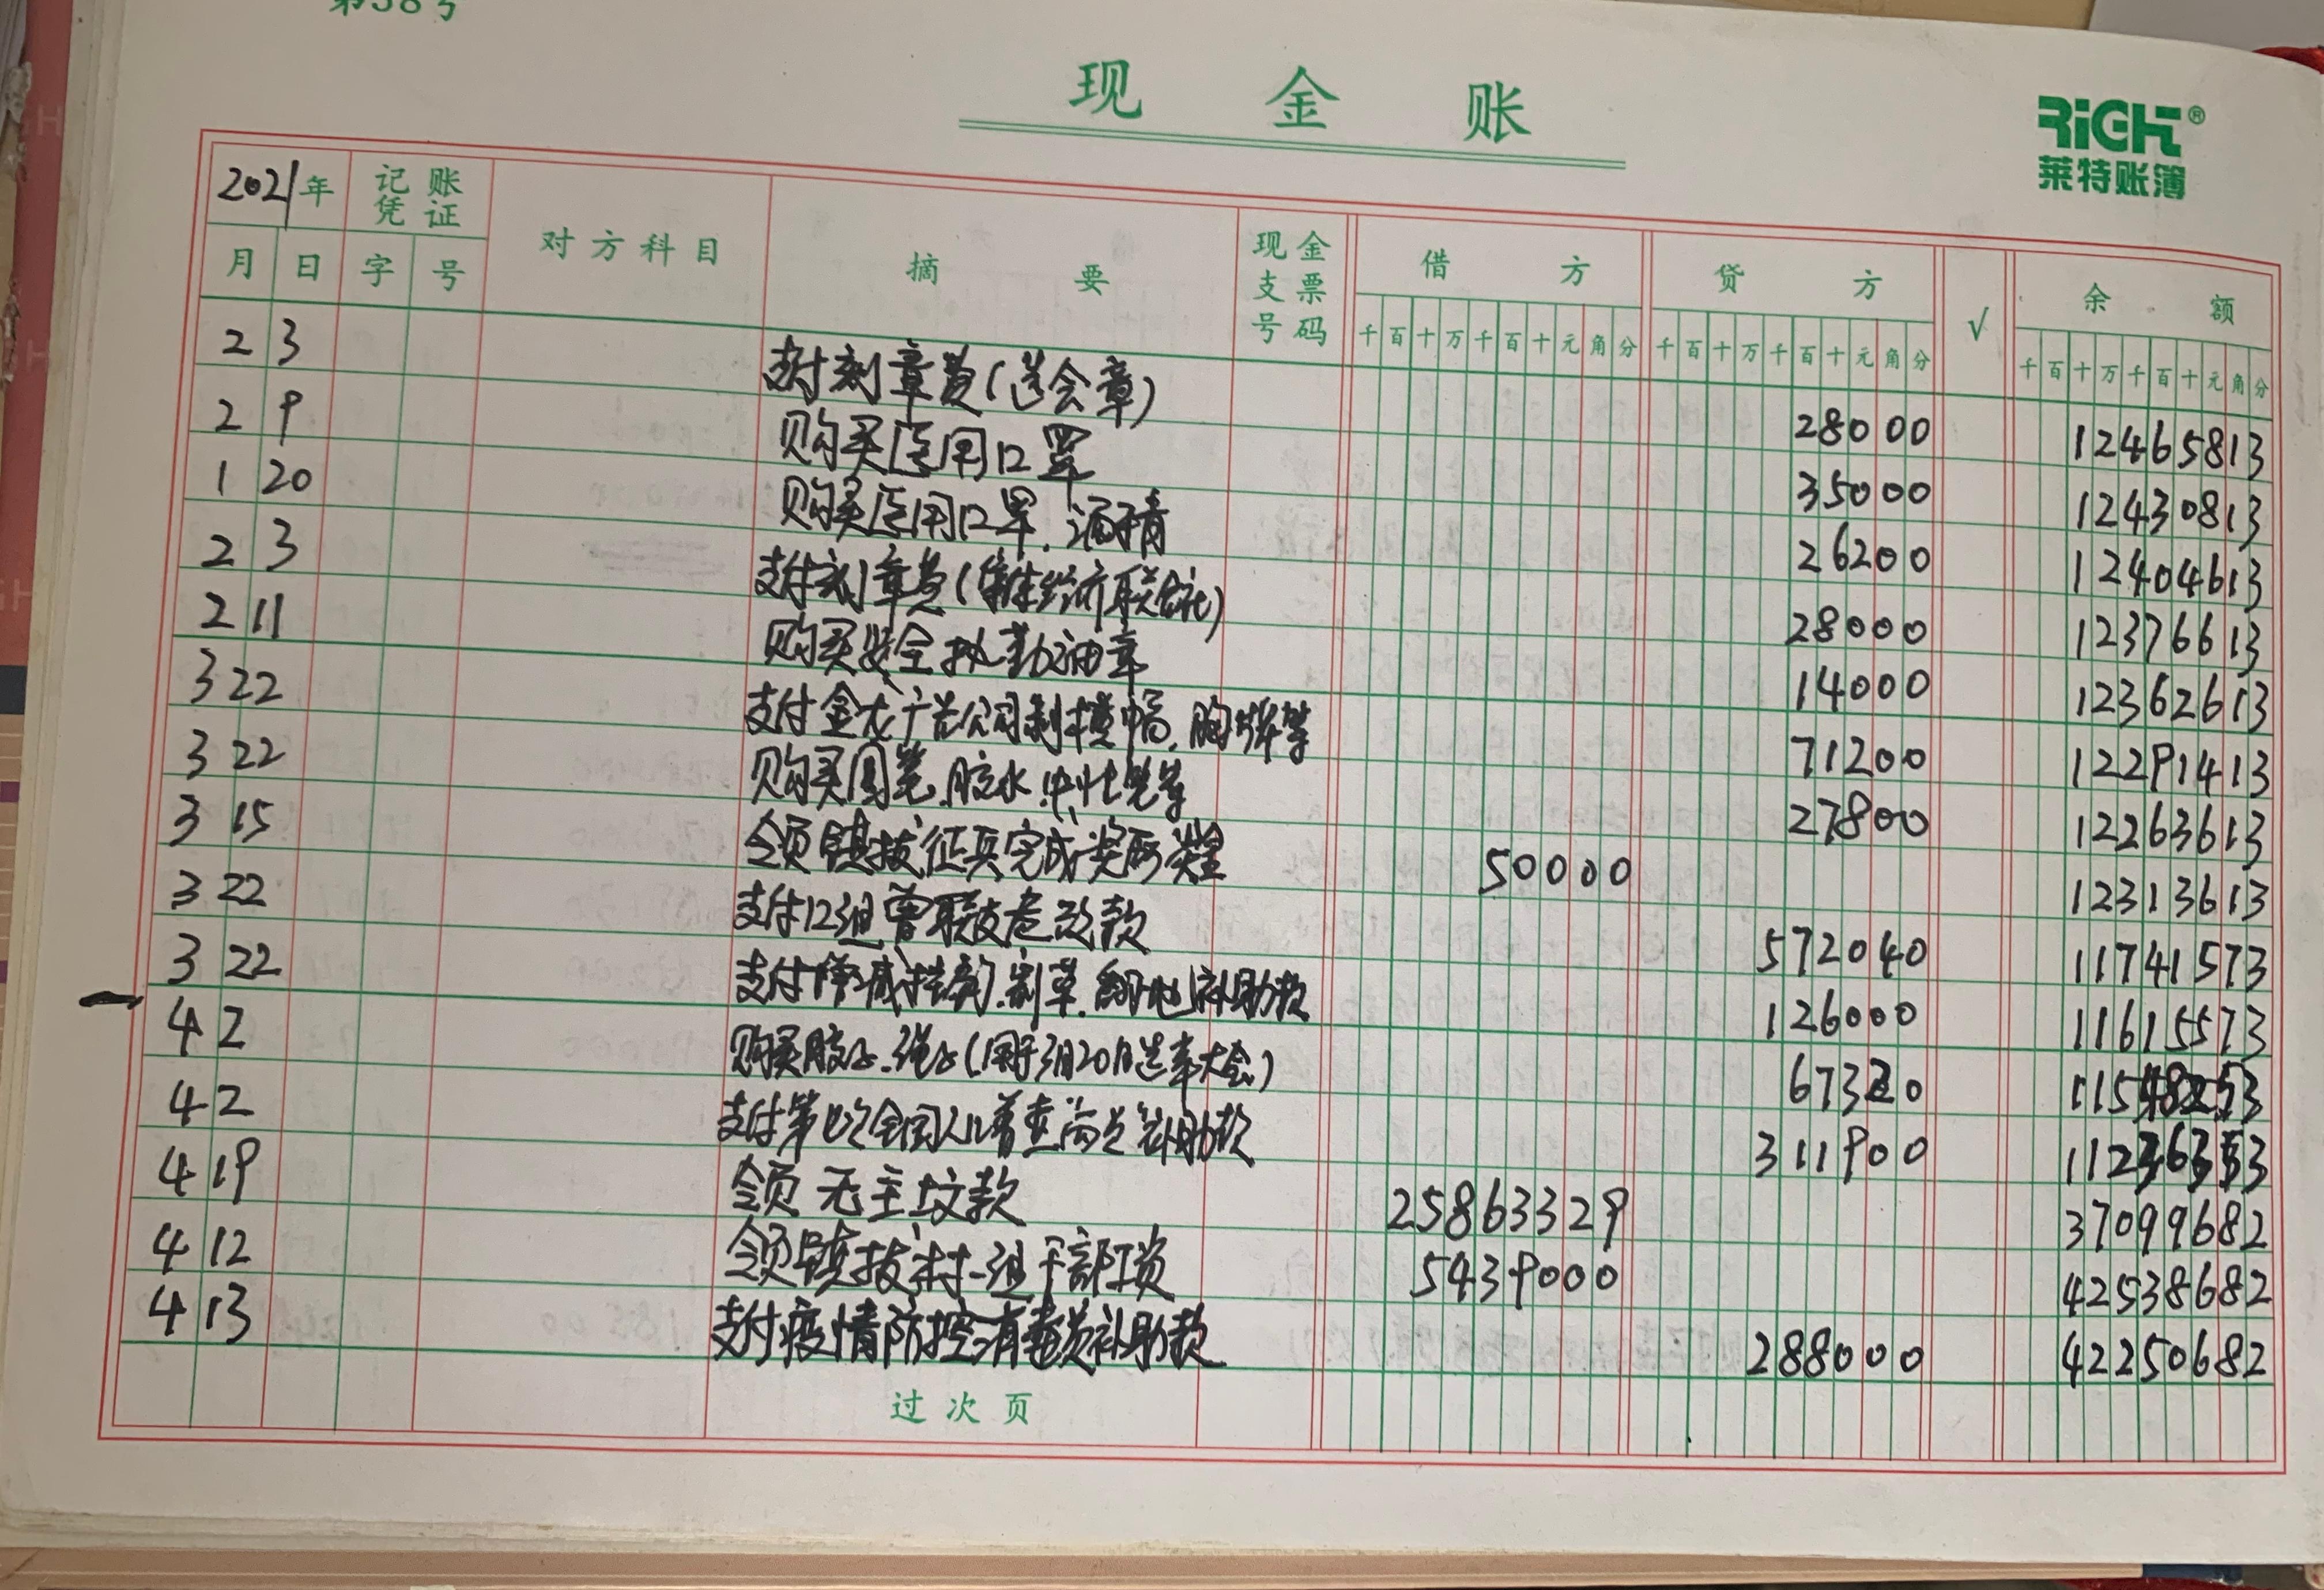 第38号
现 金 账
RiGHT®
莱特账簿
2021年 记账凭证 对方科目 摘 要 现金支票号码 借 方 贷 方 √ 余 额
月 日 字 号 千百十万千百十元角分 千百十万千百十元角分 千百十万千百十元角分
2 3 支付刻章费( 会章) 28000 12465813
2 9 购买医用口罩 35000 12430813
1 20 购买医用口罩.酒精 26200 12404613
2 3 支付刻章费(集体经济联合社) 28000 12376613
2 11 购买安全执勤油章 14000 12362613
3 22 支付金龙广告公司制横幅.胸牌等 71200 12291413
3 22 购买圆笔.胶水.中性笔等 27800 12263613
3 15 领镇拨征兵完成奖励奖金 50000 12313613
3 22 支付12组曾联支危改款 572040 11741573
3 22 支付 割草.翻地补助款 126000 11615573
4 2 购买胶 (用于3月20日选举大会) 67320 11548253
4 2 支付第七次全国人口普查 补助款 311900 11236353
4 19 领无主坟款 25863329 37099682
4 12 领镇拨村.组干部工资 5439000 42538682
4 13 支付疫情防控消毒员补助款 288000 42250682
过次页